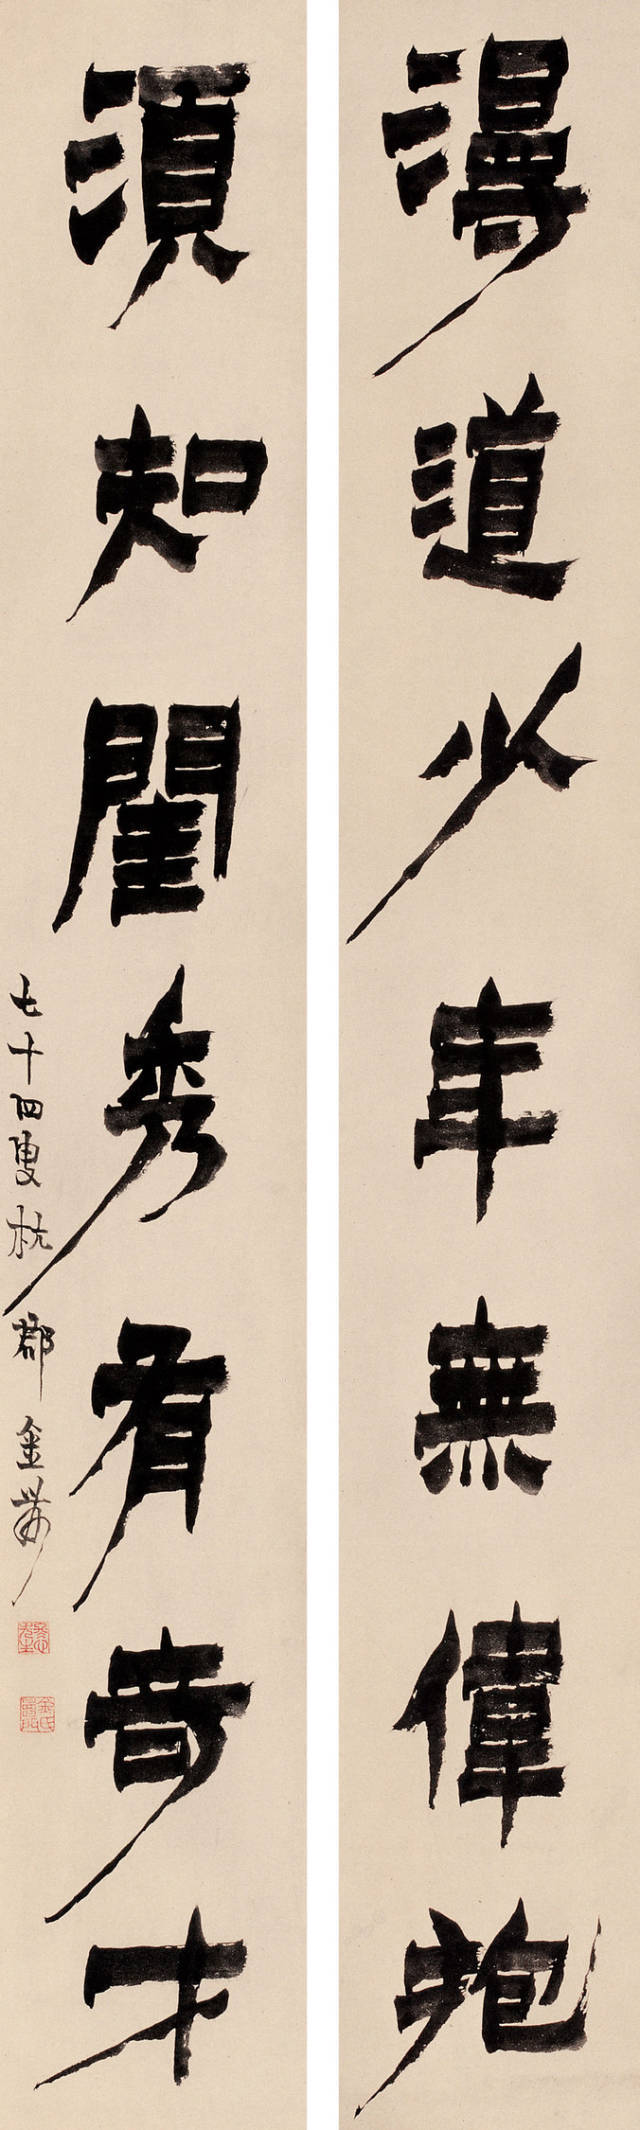 漫道少年無偉抱
須知閨秀有奇才
七十四叟杭郡金農